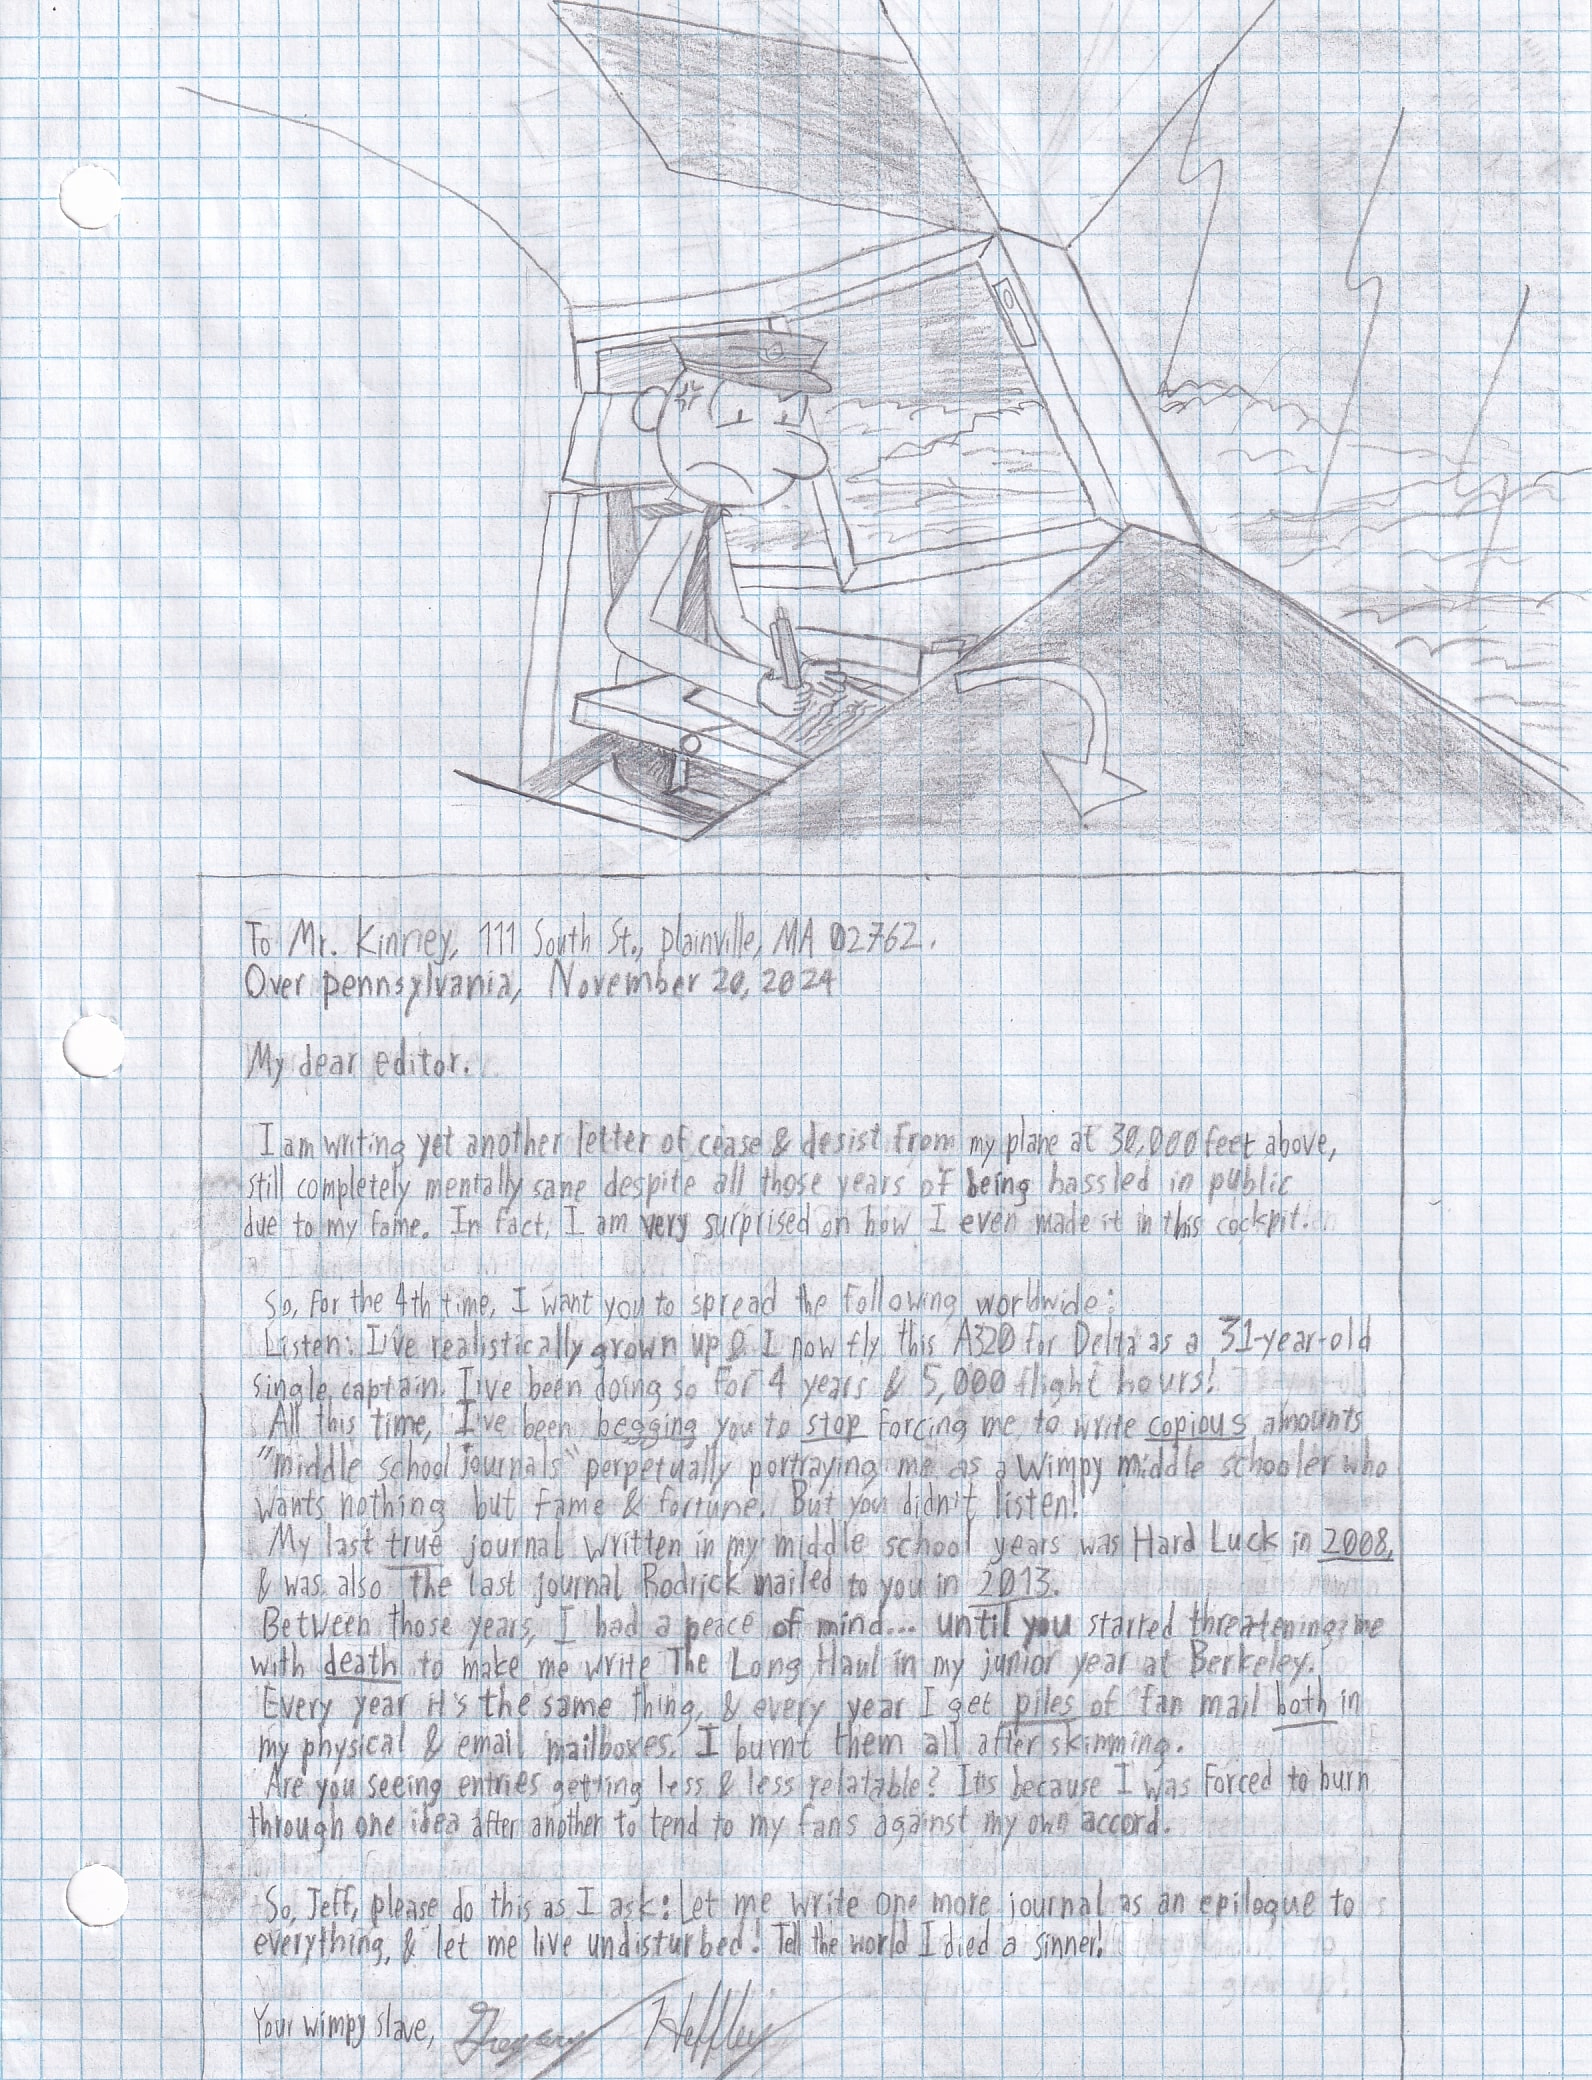 To Mr. Kinney, 111 South St., Plainville, MA 02762.
Over Pennsylvania, November 20, 2024
My dear editor.
I am writing yet another letter of cease & desist from my plane at 30,000 feet above,
still completely mentally sane despite all those years of being hassled in public
due to my fame. In fact, I am very surprised on how I even made it in this cockpit.
So, for the 4th time, I want you to spread the following worldwide:
Listen: I've realistically grown up & I now fly this A320 for Delta as a 31-year-old
single captain. I've been doing so for 4 years & 5,000 flight hours!
All this time, I've been begging you to stop forcing me to write copious amounts
"middle school journals" perpetually portraying me as a wimpy middle schooler who
wants nothing but fame & fortune. But you didn't listen!
My last true journal written in my middle school years was Hard Luck in 2008,
& was also the last journal Rodrick mailed to you in 2013.
Between those years, I had a peace of mind... until you started threatening me
with death to make me write The Long Haul in my junior year at Berkeley.
Every year it's the same thing, & every year I get piles of fan mail both in
my physical & email mailboxes. I burnt them all after skimming.
Are you seeing entries getting less & less relatable? It's because I was forced to burn
through one idea after another to tend to my fans against my own accord.
So, Jeff, please do this as I ask: Let me write one more journal as an epilogue to
everything, & let me live undisturbed! Tell the world I died a sinner!
Your wimpy slave, Gregory Heffley